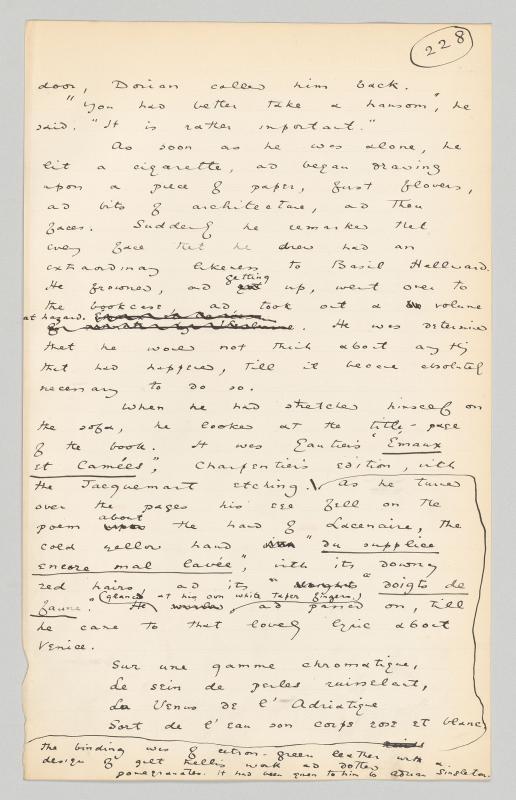 228
door, Dorian called him back.
"You had better take a hansom", he
said. "It is rather important."
As soon as he was alone, he
lit a cigarette, and began drawing
upon a piece of paper, first flowers,
and bits of architecture, and then
faces. Suddenly he remarked that
every face that he drew had an
extraordinary likeness to Basil Hallward.
getting
He frowned, and up, went over to
the bookcase, and took out a volume
at hazard.
He was determined
that he would not think about anything
that had happened, till it became absolutely
necessary to do so.
When he had stretched himself on
the sofa, he looked at the title-page
of the book. It was Gautier's "Émaux
et Camées", Charpentier's edition, with
the Jacquemart etching. As he turned
over the pages his eye fell on the
about
poem the hand of Lacenaire, the
cold yellow hand "du supplice
encore mal lavée", with its downy
red hairs, and its "doigts de
(glanced at his own white taper fingers,)
faune." He and passed on, till
he came to that lovely lyric about
Venice.
Sur une gamme chromatique,
Le sein de perles ruisselant,
La Vénus de l'Adriatique
Sort de l'eau son corps rose et blanc.
the binding was of citron-green leather with a
design of gilt trellis work and dotted
pomegranates. it had been given to him by Adrian Singleton.